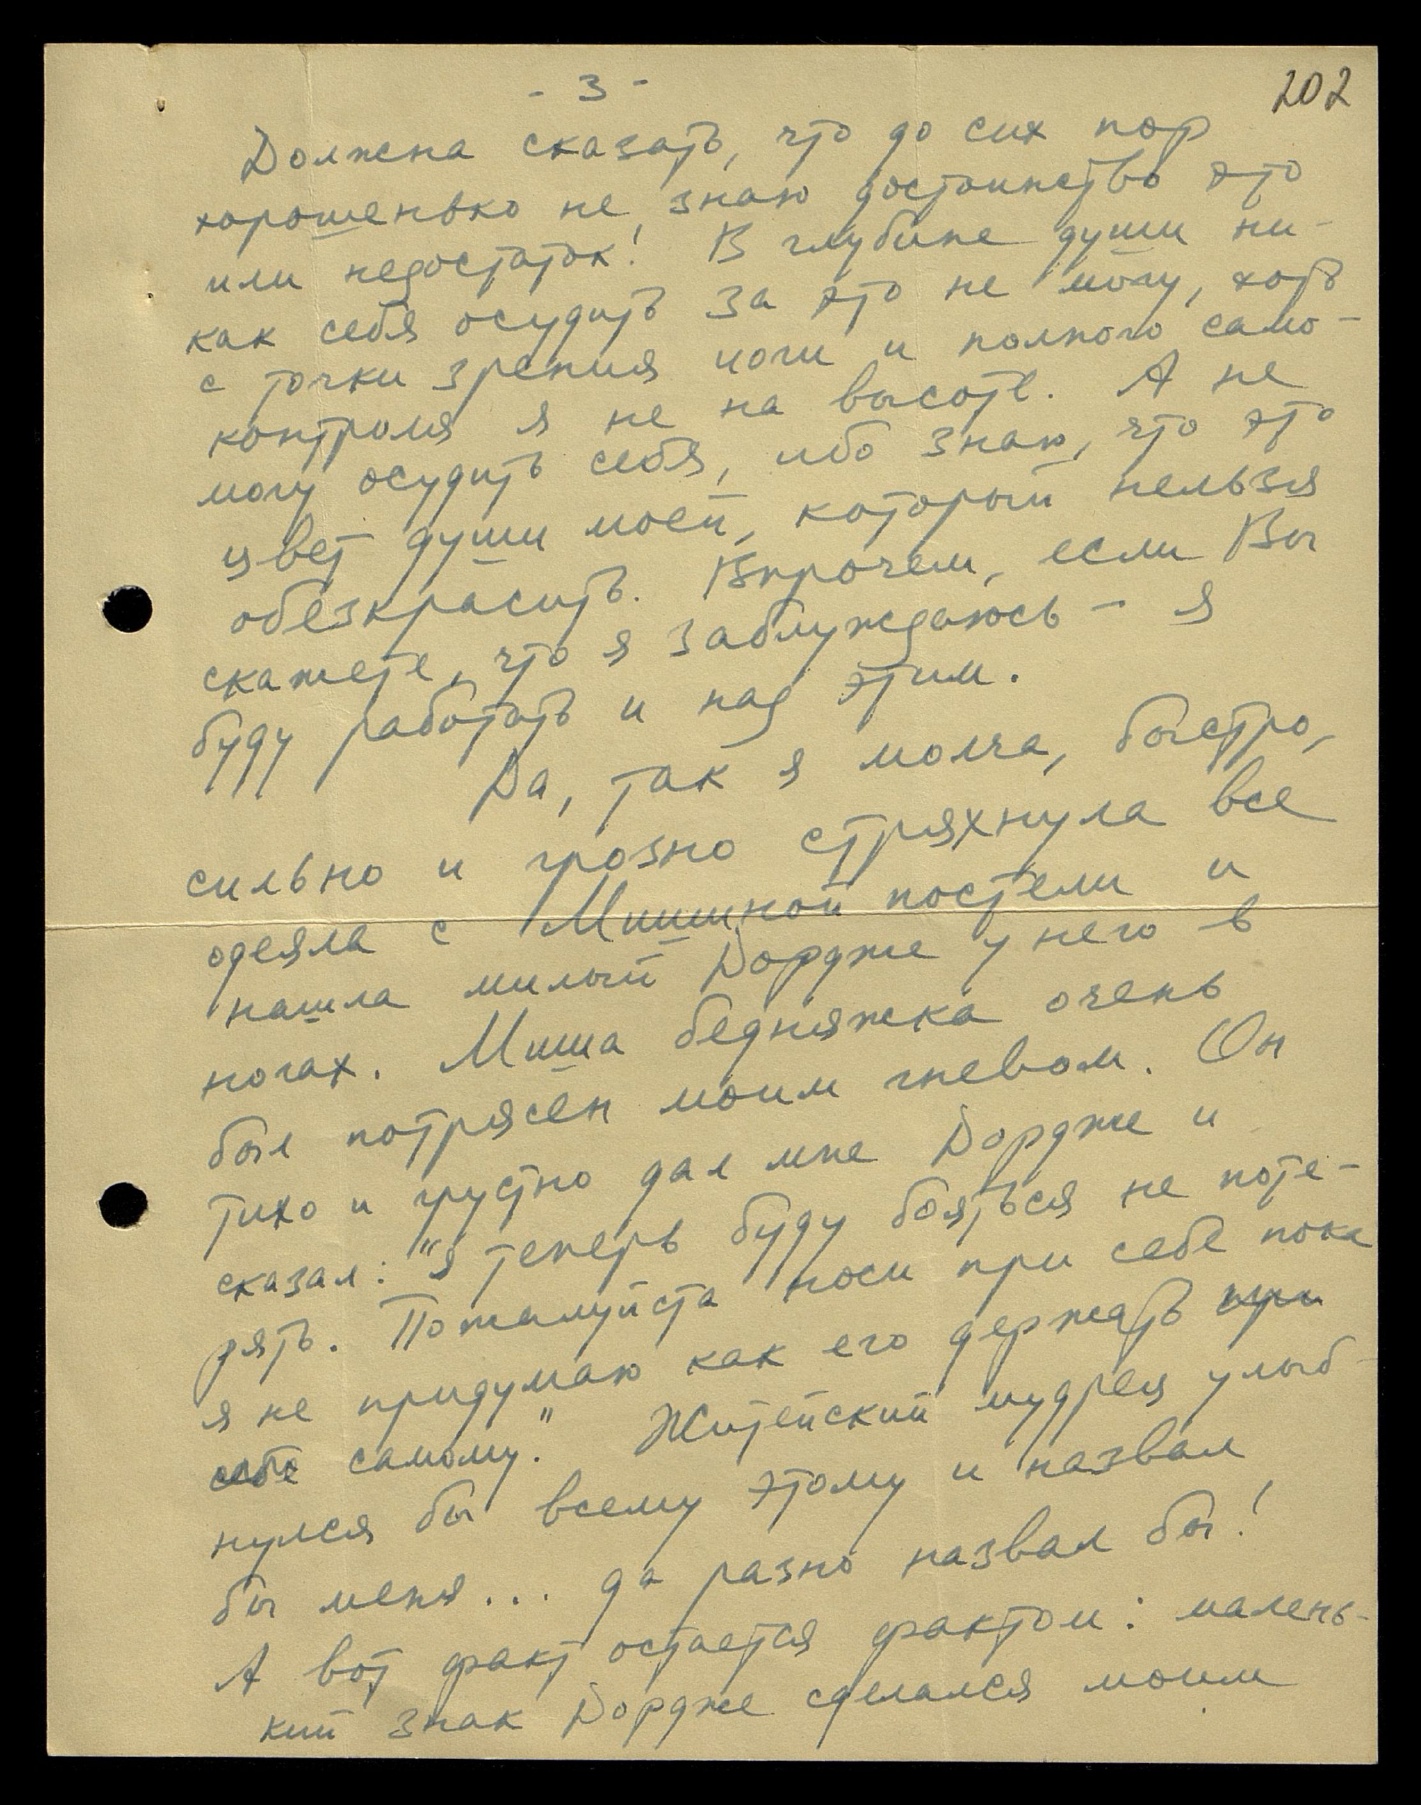 - 3 -
202
Должна сказать, что до сих пор
хорошенько не знаю достоинство это
или недостаток! В глубине души ни-
как себя осудить за это не могу, хоть
с точки зрения йоги и полного само-
контроля я не на высоте. А не
могу осудить себя, ибо знаю, что это
цвет души моей, который нельзя
обезкрасить. Впрочем, если Вы
скажете, что я заблуждаюсь - я
буду работать и над этим.
Да, так я молча, быстро,
сильно и грозно стряхнула все
одеяла с Мишиной постели и
нашла милый Дордже у него в
ногах. Миша бедняжка очень
был потрясён моим гневом. Он
тихо и грустно дал мне Дордже и
сказал: "Я теперь буду бояться не поте-
рять. Пожалуйста носи при себе пока
я не придумаю как его держать при
себе самому." Житейский мудрец улыб-
нулся бы всему этому и назвал
бы меня... да разно назвал бы!
А вот факт остается фактом: малень-
кий знак Дордже сделался моим